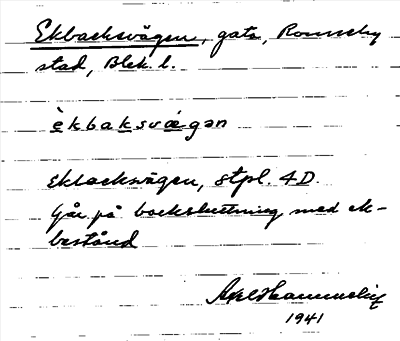 Ekbacksvägen, gata, Ronneby
stad, Blek. l.
èkbaksvǽgən
Ekbacksvägen, stpl. 4D.
Går på backsluttning med ek-
bestånd
Axel
1941